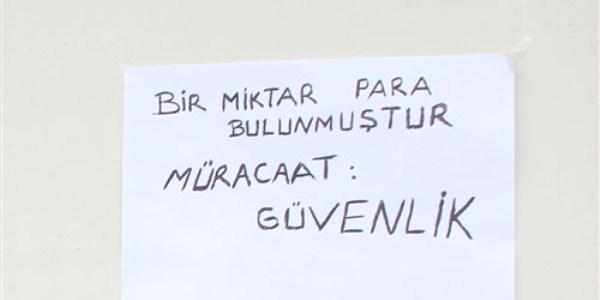 BİR MİKTAR PARA
BULUNMUŞTUR
MÜRACAAT :
GÜVENLİK